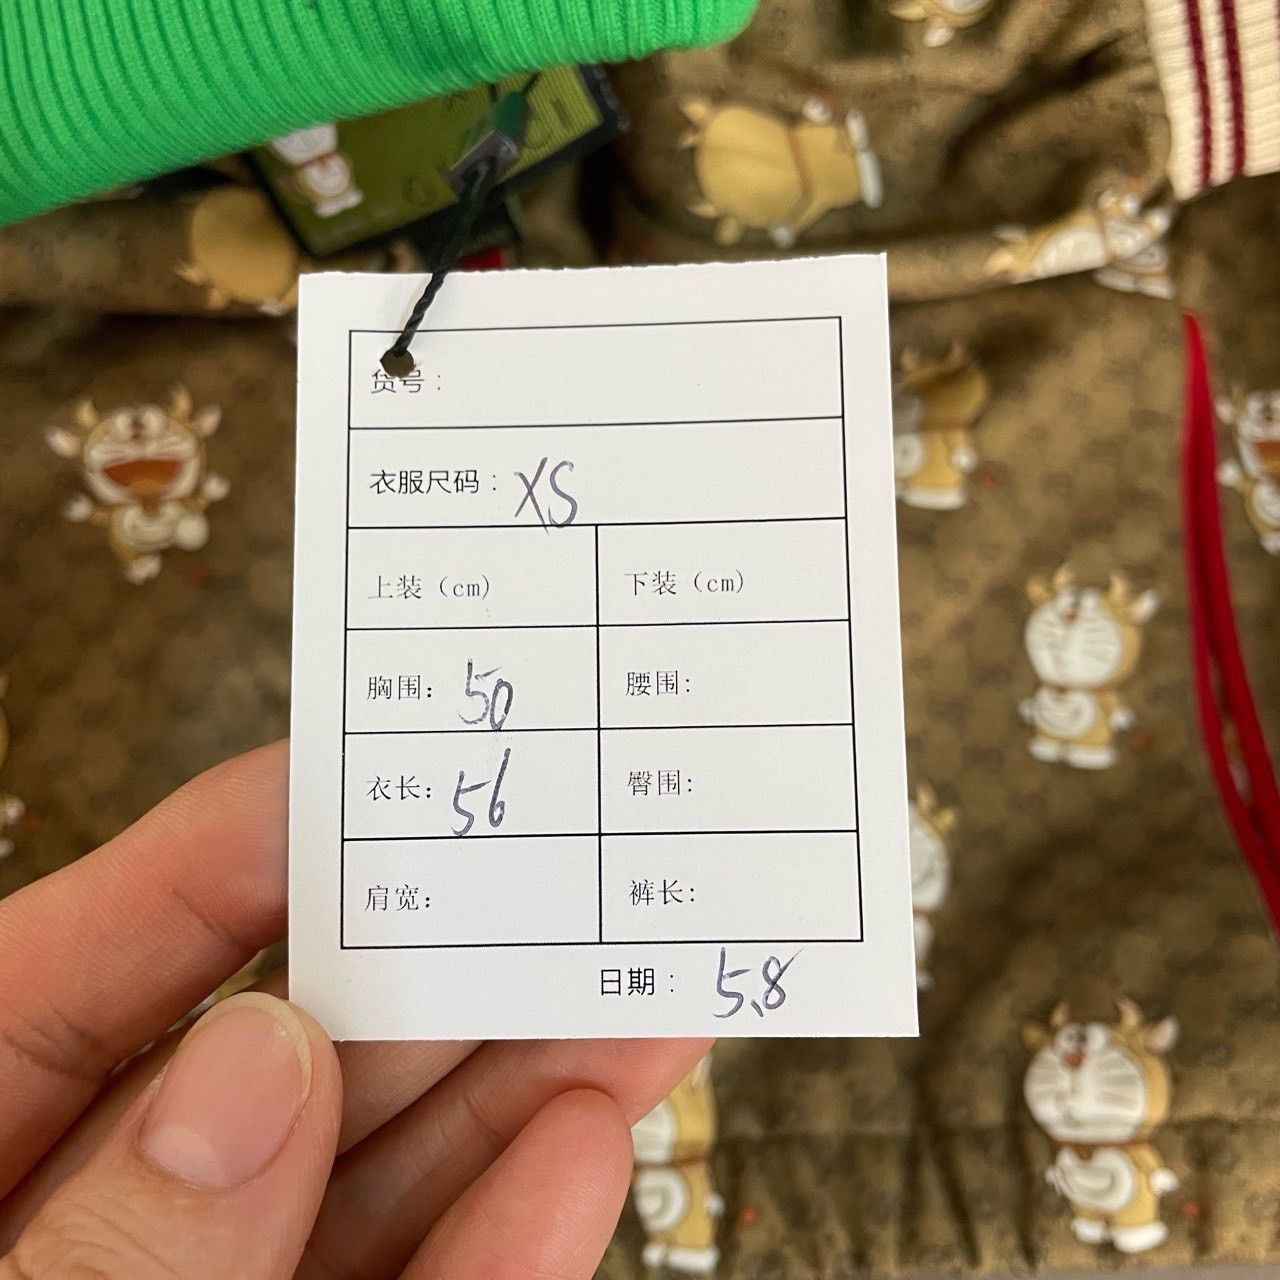 货号：
衣服尺码：XS
上装（cm） 下装（cm）
胸围：50 腰围：
衣长：56 臀围：
肩宽： 裤长：
日期：5.8